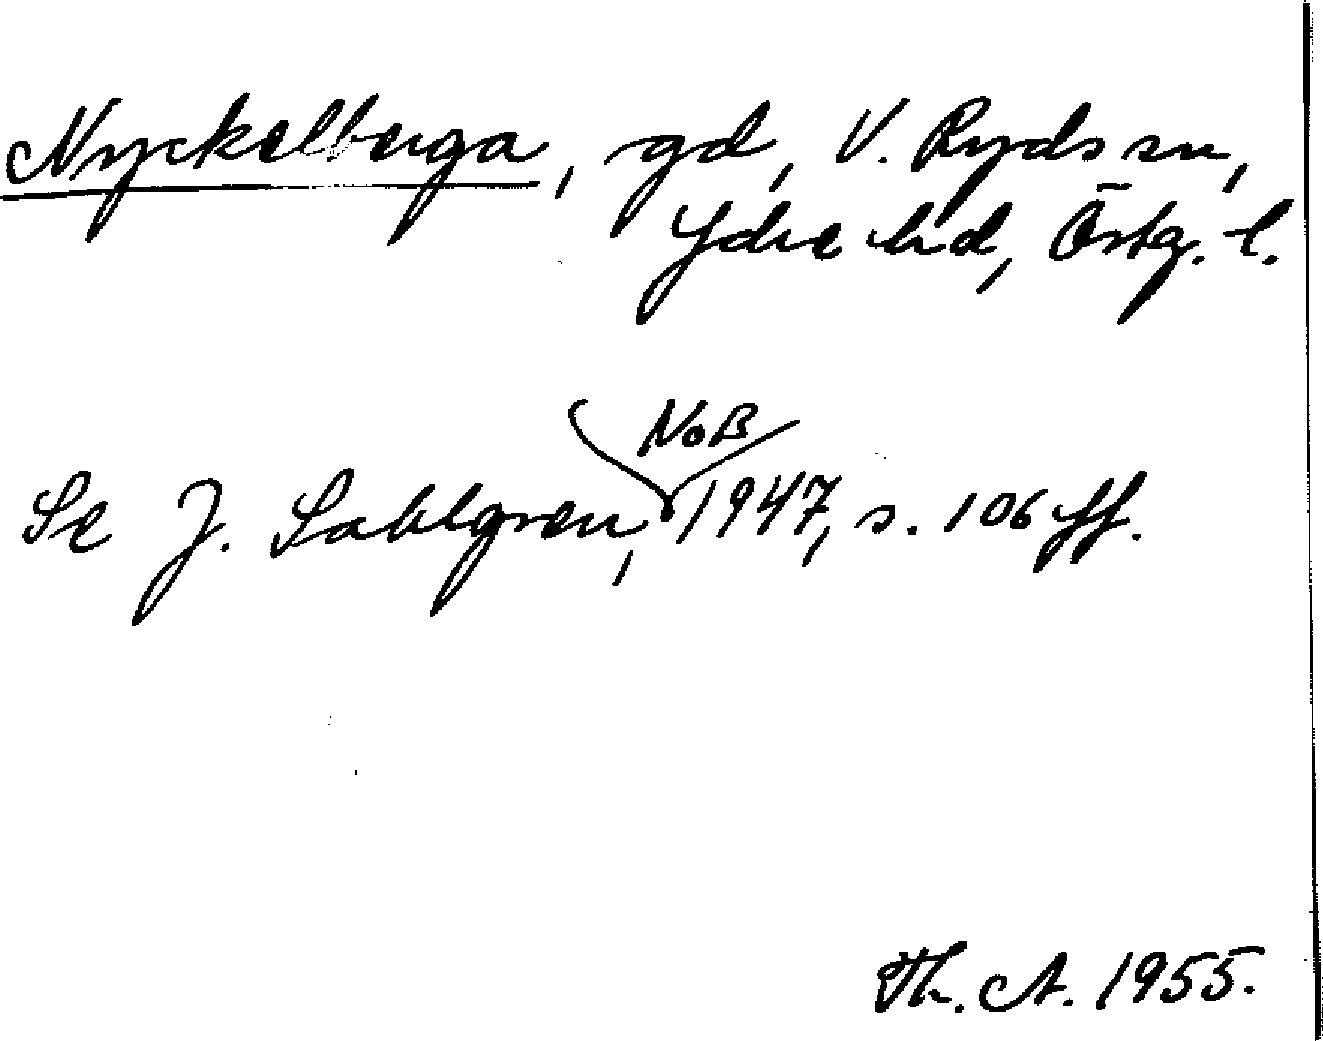 Nyckelberga, gd, V. Ryds sn,
Ydre hd, Östg. l.
Se J. Sahlgren, NoB 1947, s. 106 ff.
Th. A. 1955.